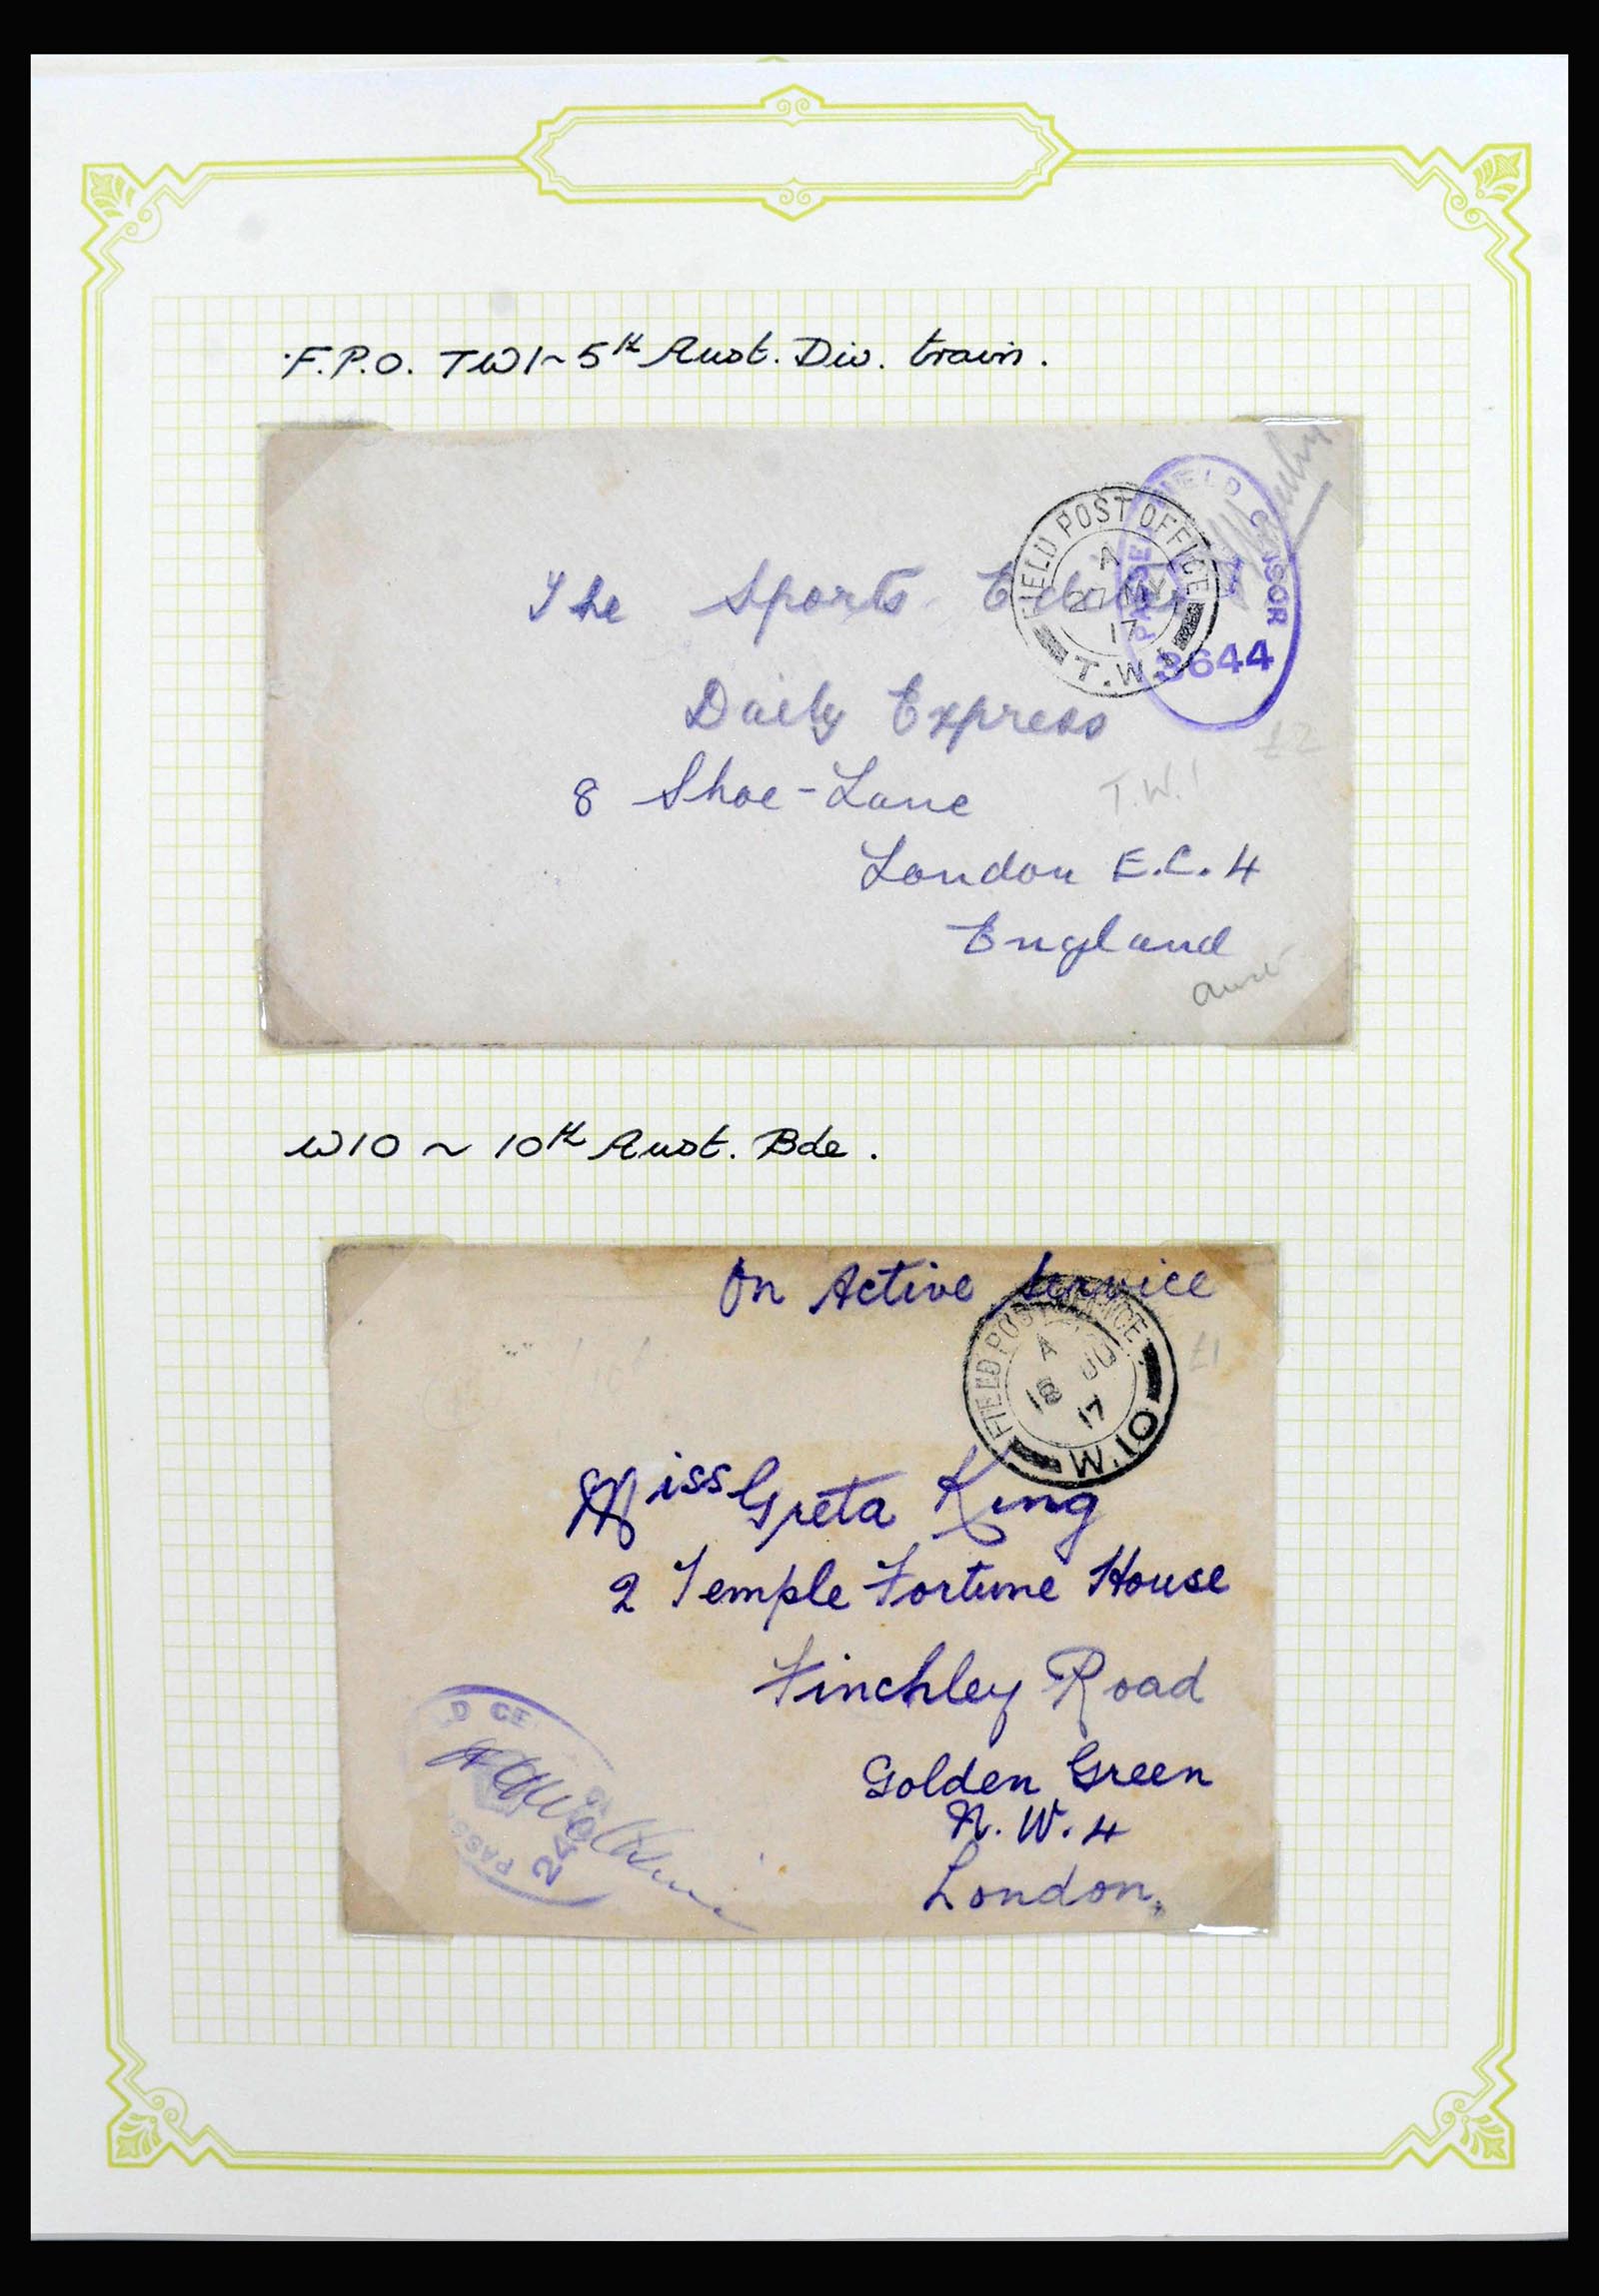 F.P.O. TW1~5th Aust. Div. train.
FIELD POST OFFICE
A
17
T.W.1
PASSED FIELD CENSOR
3644
The Sports Editor
Daily Express
8 Shoe-Lane
London E.C.4
England
£2
T.W.1
Aust
W10 ~ 10th Aust. Bde.
On Active Service
FIELD POST OFFICE
A JU
18 17
W.10
£1
Miss Greta King
2 Temple Fortune House
Finchley Road
Golden Green
N.W.4
London,
D CE
PASS